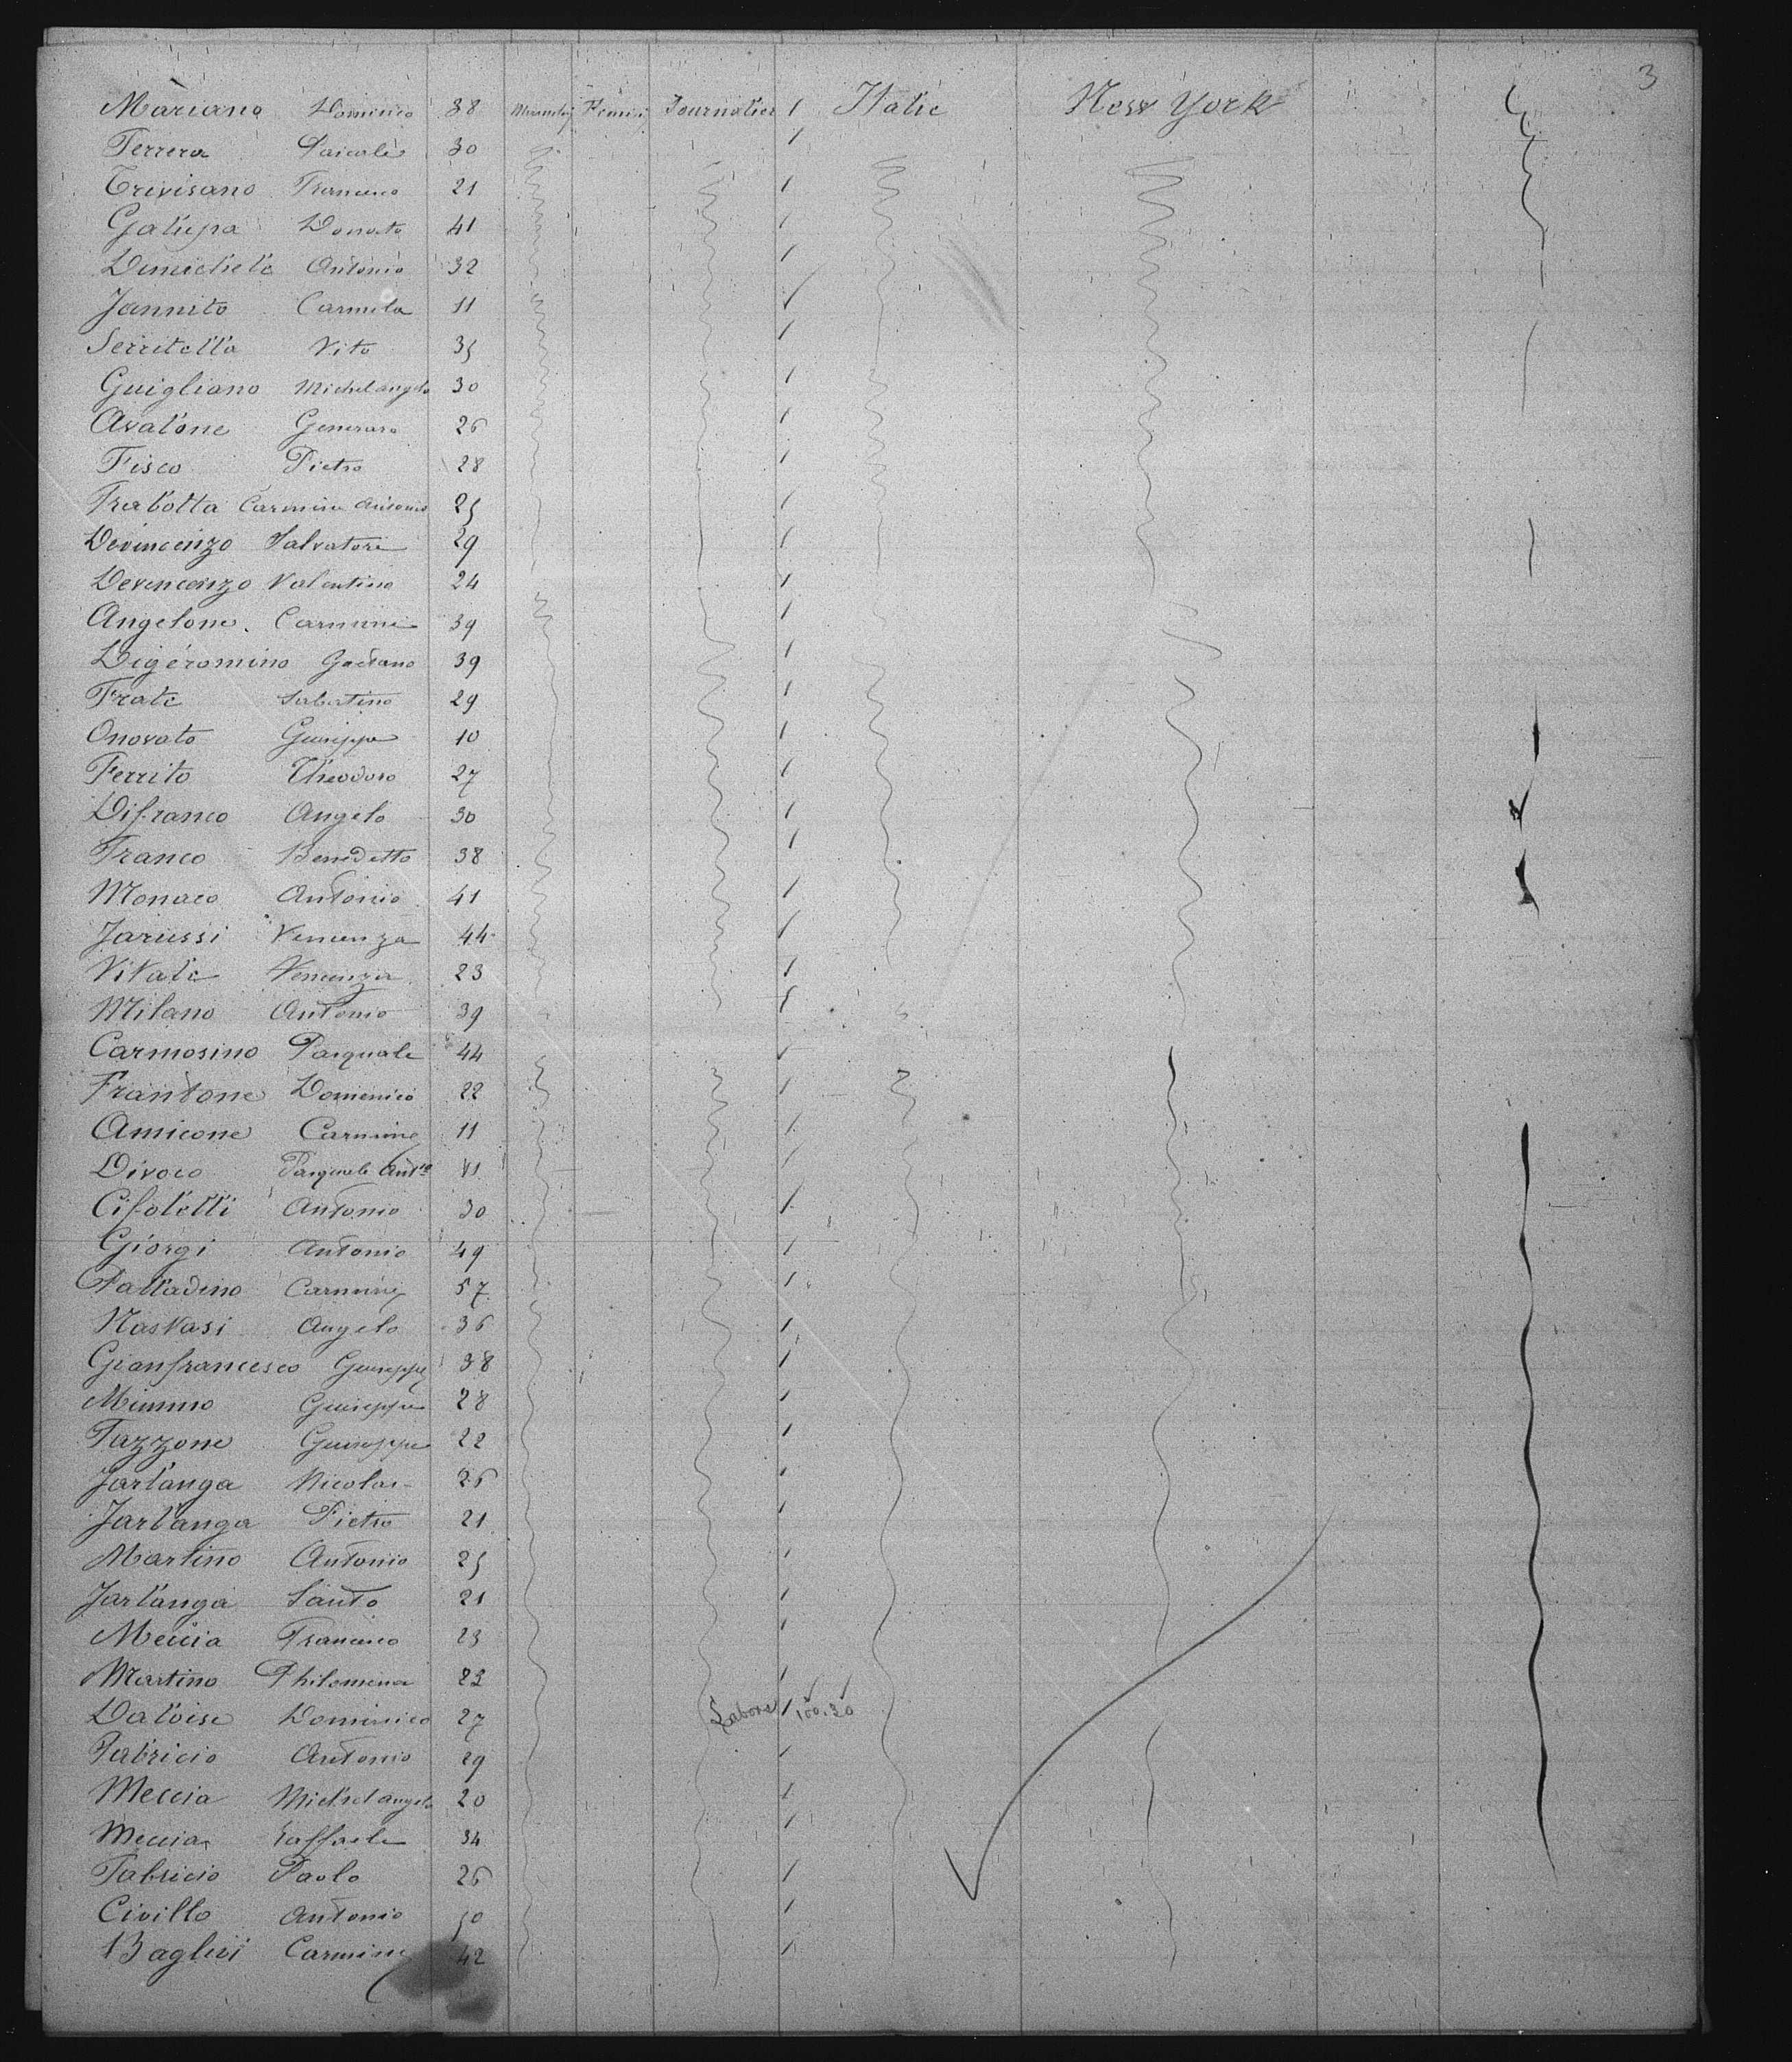 3
Mariano Dominico 38 Journalier 1 Italie New York
Ferrera Pascale 30 1
Trevisano Francesco 21 1
Galupa Donato 41 1
Dimichele Antonio 32 1
Jannito Carmela 11 1
Serritella Vito 35 1
Guigliano Michelangelo 30 1
Avalone Generaro 26 1
Fisco Pietro 28 1
Trabotta Carmine Antonio 25 1
Devincenzo Salvatore 29 1
Devencenzo Valentino 24 1
Angelone Carmine 39 1
Digeromino Gaetano 39 1
Frate Sabatino 29 1
Onorato Giuseppe 10 1
Ferrito Theodoro 27 1
Difranco Angelo 30 1
Franco Benedetto 38 1
Monaco Antonio 41 1
Jarussi Vincenza 44 1
Vitale Vincenza 23 1
Milano Antonio 39 1
Carmosino Pasquale 44 1
Frantone Domenico 22 1
Amicone Carmine 11 1
Divoco Pasquale Anto 1
Cifolelli Antonio 30 1
Giorgi Antonio 49 1
Palladino Carmine 57 1
Nastasi Angelo 36 1
Gianfrancesco Giuseppe 38 1
Mimmo Giuseppe 28 1
Tazzone Giuseppe 22 1
Jarlanga Nicolas 26 1
Jarlanga Pietro 21 1
Martino Antonio 25 1
Jarlanga Santo 21 1
Meccia Francesco 23 1
Martino Philomena 23 1
Daloise Dominico 27 Labore 1 100.30
Fabricio Antonio 29 1
Meccia Michelangelo 20 1
Meccia Raffaele 34 1
Fabricio Paolo 26 1
Civillo Antonio 50 1
Baglivi Carmine 42 1